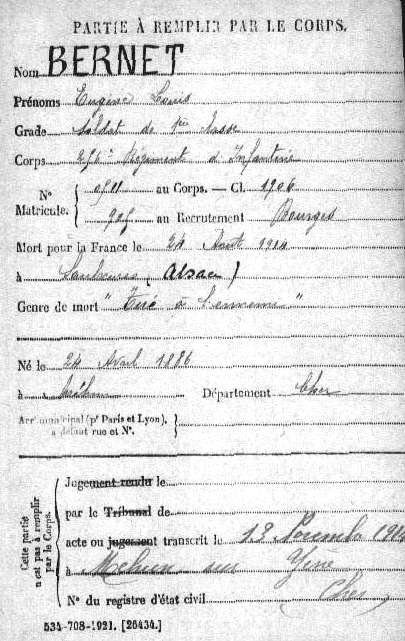 PARTIE À REMPLIR PAR LE CORPS.
Nom BERNET
Prénoms Eugène Louis
Grade Soldat de 1ère classe
Corps Régiment d'Infanterie
N° Matricule. au Corps. — Cl. 1906
au Recrutement Bourges
Mort pour la France le 24 Août 1914
à (Alsace)
Genre de mort "Tué à l'ennemi"
Né le 24 Avril 1886
à Méhun Département Cher
Arrt municipal (pr Paris et Lyon),
à défaut rue et N°.
Cette partie n'est pas à remplir par le Corps.
Jugement rendu le
par le Tribunal de
acte ou jugement transcrit le 13 Novembre
à Mehun sur Yèvre
N° du registre d'état civil Cher
534-708-1921. [26434.]